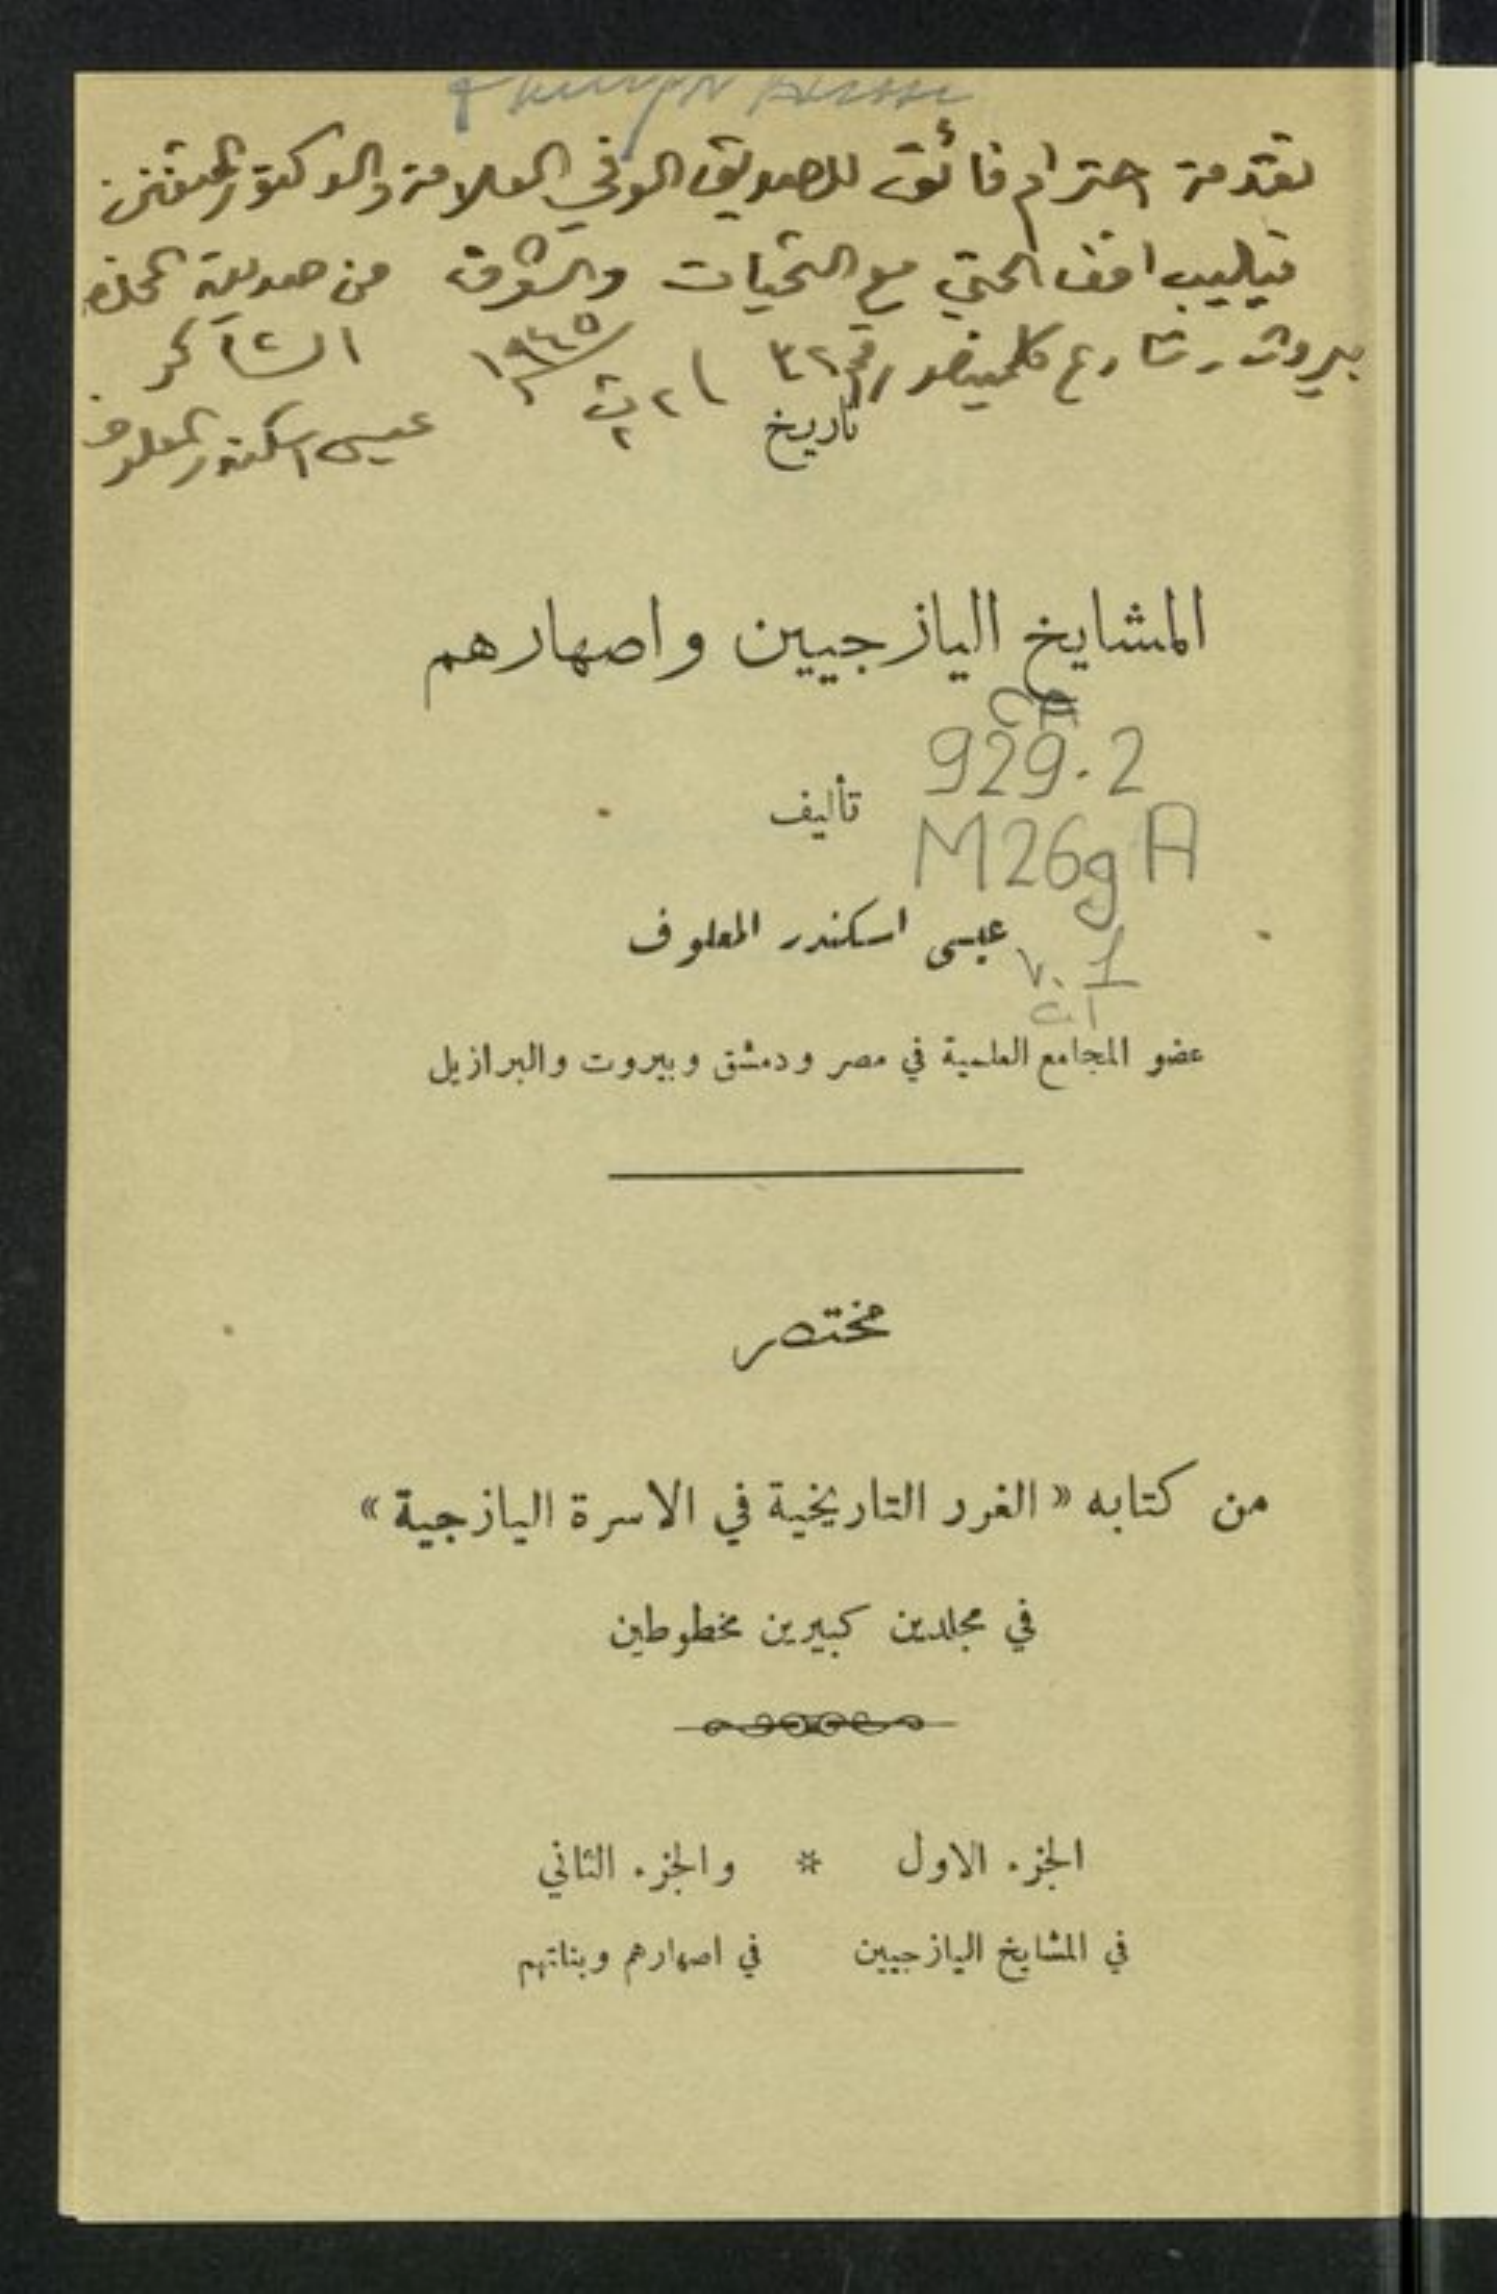 تقدمة احترام فائق للصديق الوفي العلامة والدكتور المتفنن
فيليب افند الحتي مع التحيات والشوق من صديقه المخلص
بيروت ـ شارع كلمنصو رقم ٣٢ ٢ ت٢ ١٩٤٥ الشاكر
عيسى اسكندر المعلوف
تاريخ
المشايخ اليازجيين واصهارهم
CA
929.2
M26gA
تأليف
عيسى اسكندر المعلوف
v.1
عضو المجامع العلمية في مصر ودمشق وبيروت والبرازيل
مختصر
من كتابه « الغرر التاريخية في الاسرة اليازجية »
في مجلدين كبيرين مخطوطين
الجزء الاول * والجزء الثاني
في المشايخ اليازجيين في اصهارهم وبناتهم